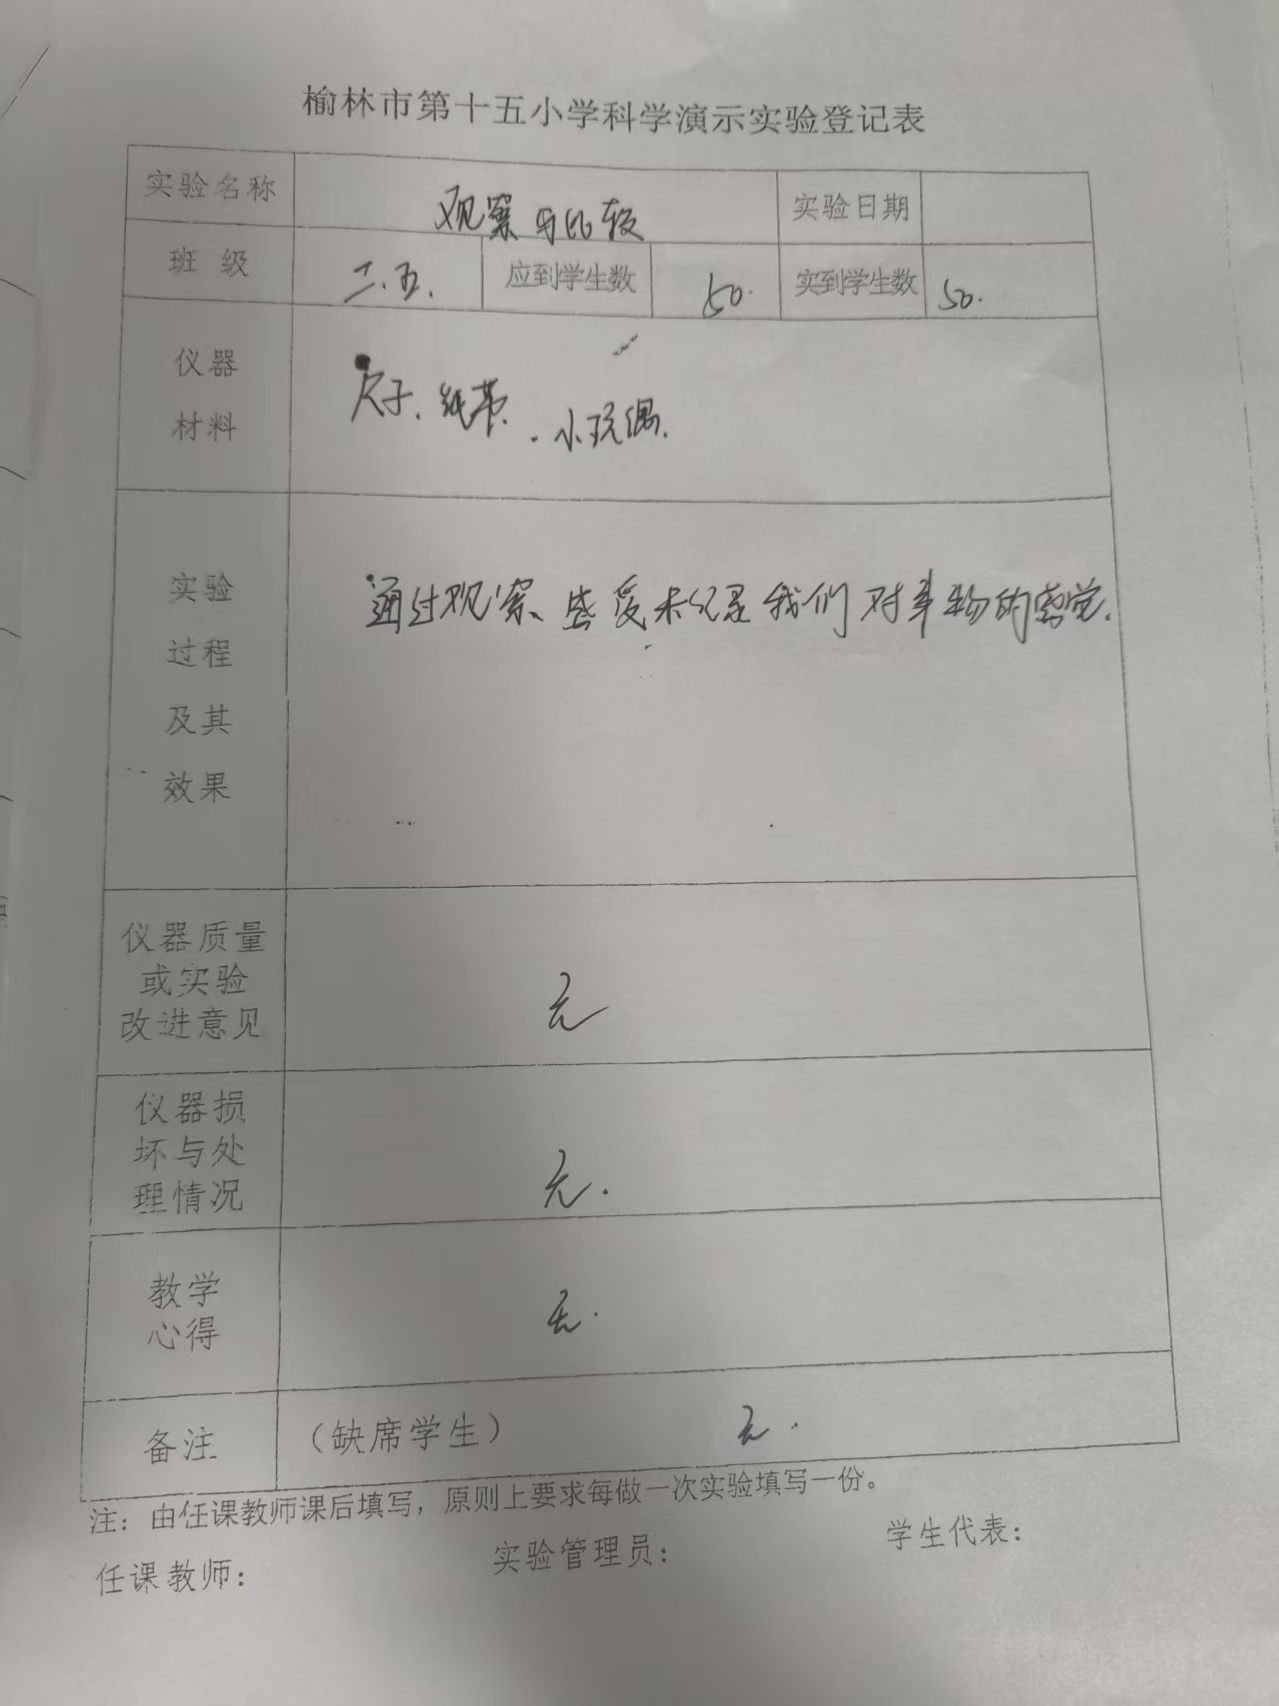 榆林市第十五小学科学演示实验登记表
实验名称 观察与比较 实验日期
班 级 二.五. 应到学生数 50. 实到学生数 50.
仪器
材料
尺子、纸带、小玩偶.
实验
过程
及其
效果
通过观察、感受来记录我们对事物的感觉.
仪器质量
或实验
改进意见
无
仪器损
坏与处
理情况
无.
教学
心得
无.
备注 (缺席学生) 无.
注：由任课教师课后填写，原则上要求每做一次实验填写一份。
任课教师： 实验管理员： 学生代表：